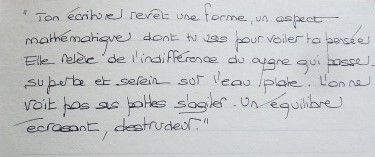 "Ton écriture revêt une forme, un aspect
mathématique dont tu uses pour voiler ta pensée
Elle relève de l'indifférence du cygne qui passe
superbe et serein sur l'eau plate. L'on ne
voit pas ses pattes s'agiter. Un équilibre
écrasant, destructeur."